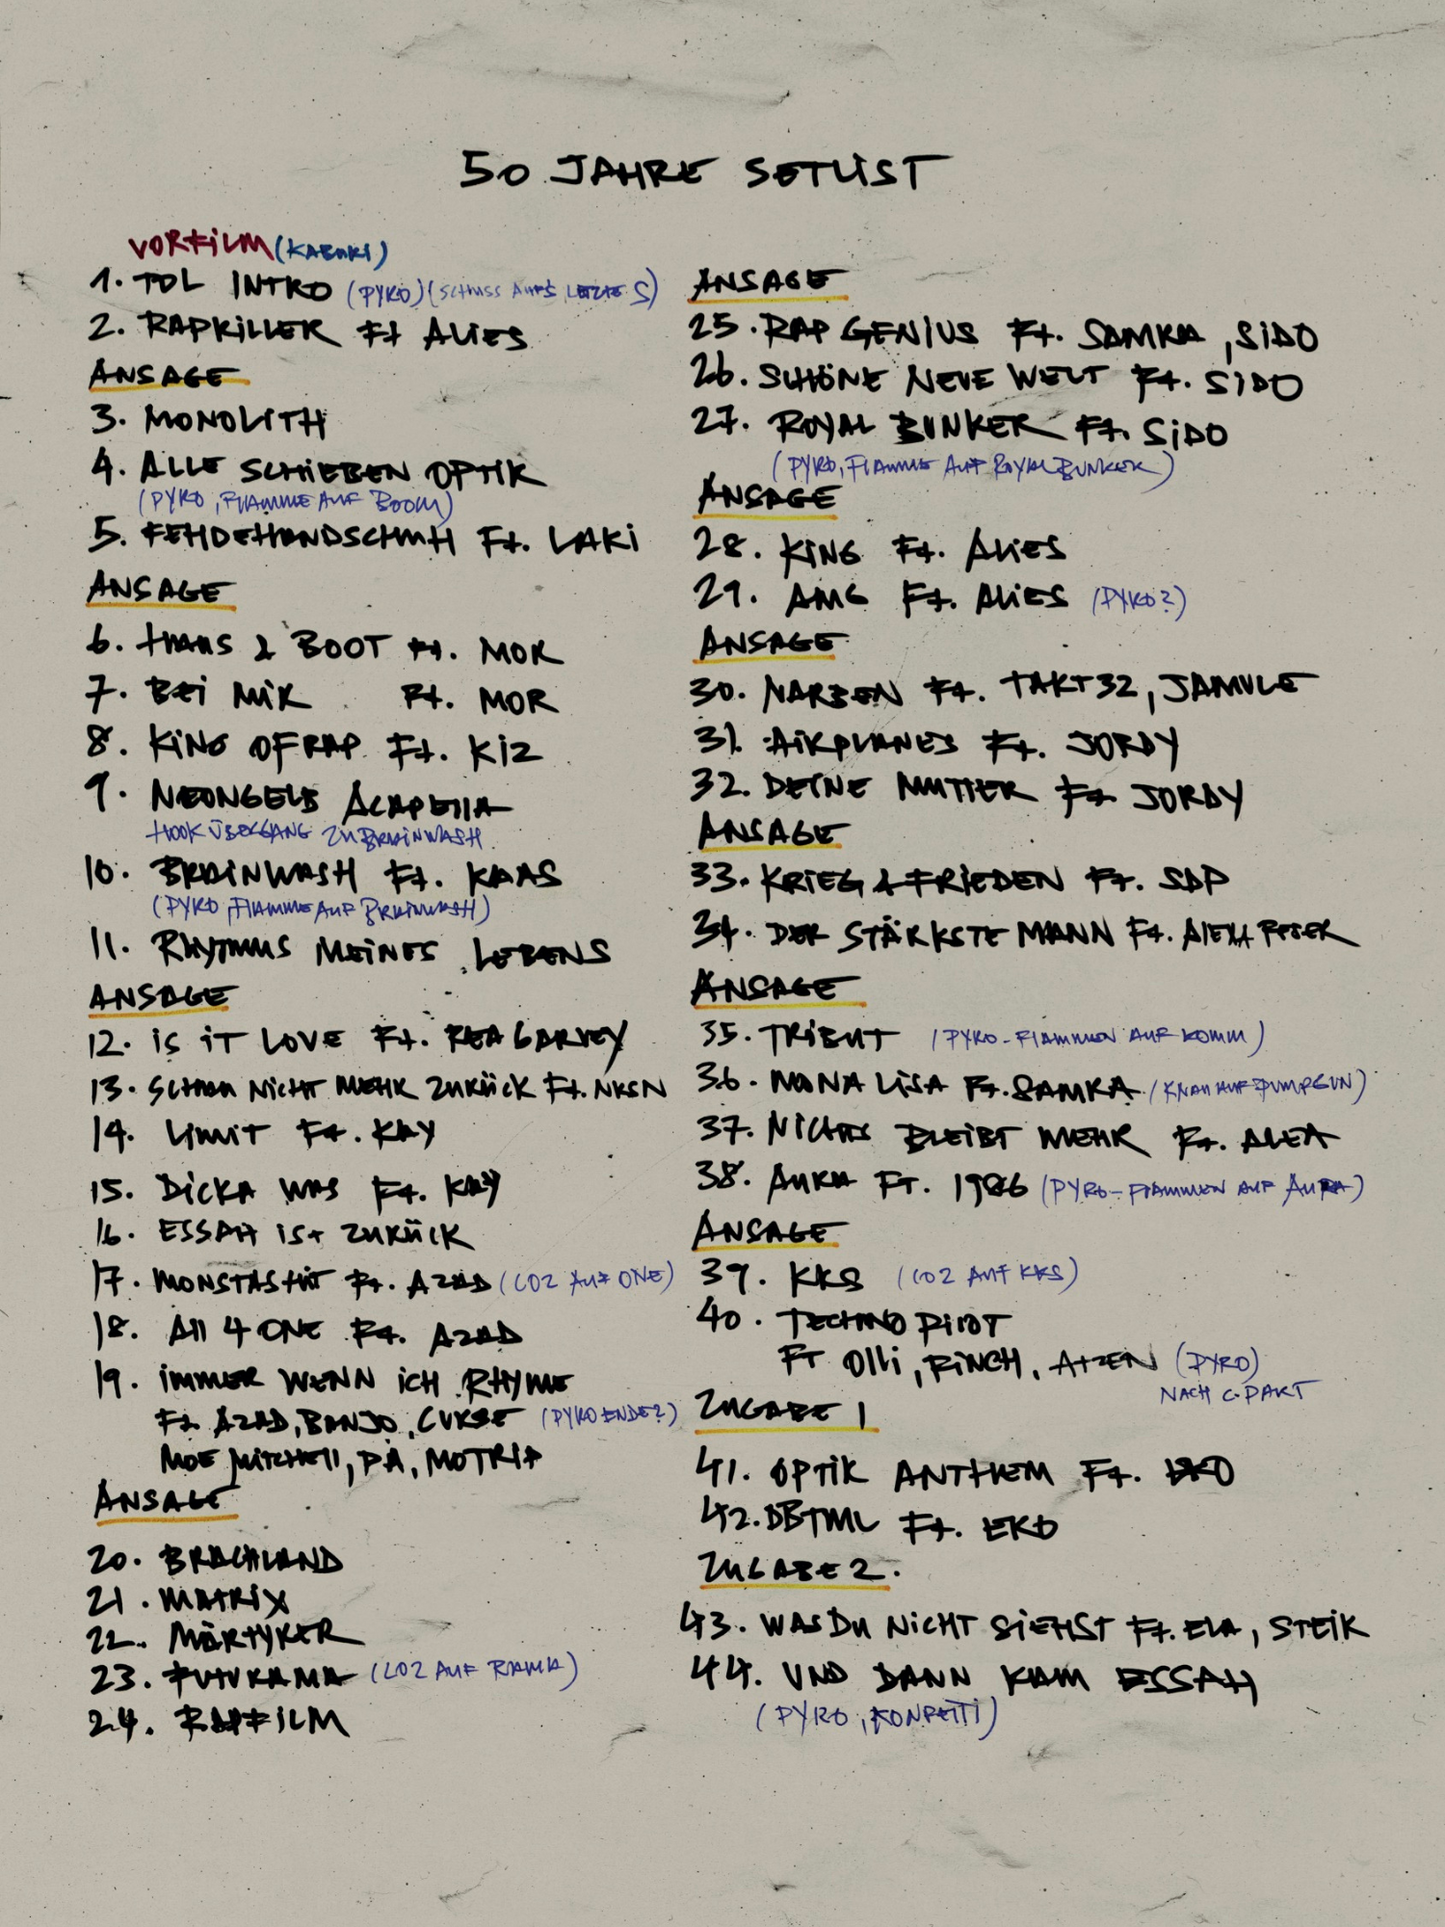 50 JAHRE SETLIST
VORFILM (KABUKI)
1. TDL INTRO (PYRO) (SCHUSS AUFS LETZTE S)
2. RAPKILLER Ft ALIES
ANSAGE
3. MONOLITH
4. ALLE SCHIEBEN OPTIK
(PYRO, FLAMME AUF BOOM)
5. FEHDEHANDSCHUH Ft. LAKI
ANSAGE
6. HAUS & BOOT Ft. MOR
7. BEI MIR Ft. MOR
8. KING OF RAP Ft. KIZ
9. NEONGELB ACAPELLA
HOOK ÜBERGANG ZU BRAINWASH
10. BRAINWASH Ft. KAAS
(PYRO, FLAMME AUF BRAINWASH)
11. RHYTMUS MEINES LEBENS
ANSAGE
12. IS IT LOVE Ft. REA GARVEY
13. SCHAU NICHT MEHR ZURÜCK Ft. NKSN
14. LIMIT Ft. KAY
15. DICKA WAS Ft. KAY
16. ESSAH IST ZURÜCK
17. MONSTASHIT Ft. AZAD (CO2 AUF ONE)
18. All 4 ONE Ft. AZAD
19. IMMER WENN ICH RHYME
Ft. AZAD, BANJO, CURSE (PYRO ENDE?)
MOE MITCHELL, PA, MOTRIP
ANSAGE
20. BRACHLAND
21. MATRIX
22. MÄRTYRER
23. FUTURAMA (CO2 AUF RAMA)
24. RAPFILM
ANSAGE
25. RAP GENIUS Ft. SAMRA, SIDO
26. SCHÖNE NEUE WELT Ft. SIDO
27. ROYAL BUNKER Ft. SIDO
(PYRO, FLAMME AUF ROYAL BUNKER)
ANSAGE
28. KING Ft. ALIES
29. AMG Ft. ALIES (PYRO?)
ANSAGE
30. NARBEN Ft. TAKT32, JAMULE
31. AIRPLANES Ft. JORDY
32. DEINE MUTTER Ft JORDY
ANSAGE
33. KRIEG & FRIEDEN Ft. SDP
34. DER STÄRKSTE MANN Ft. ALEXA FESER
ANSAGE
35. TRIBUT (PYRO-FLAMMEN AUF KOMM)
36. MONA LISA Ft. SAMRA (KNALL AUF PUMPGUN)
37. NICHTS BLEIBT MEHR Ft. ALEA
38. AURA FT. 1986 (PYRO-FLAMMEN AUF AURA)
ANSAGE
39. KKS (CO2 AUF KKS)
40. TECHNO PILOT
FT Olli, FINCH, ATZEN (PYRO)
NACH C-PART
ZUGABE 1
41. OPTIK ANTHEM Ft. EKO
42. DBTML Ft. EKO
ZUGABE 2.
43. WAS DU NICHT SIEHST Ft. ELA, STEIK
44. UND DANN KAM ESSAH
(PYRO, KONFETTI)